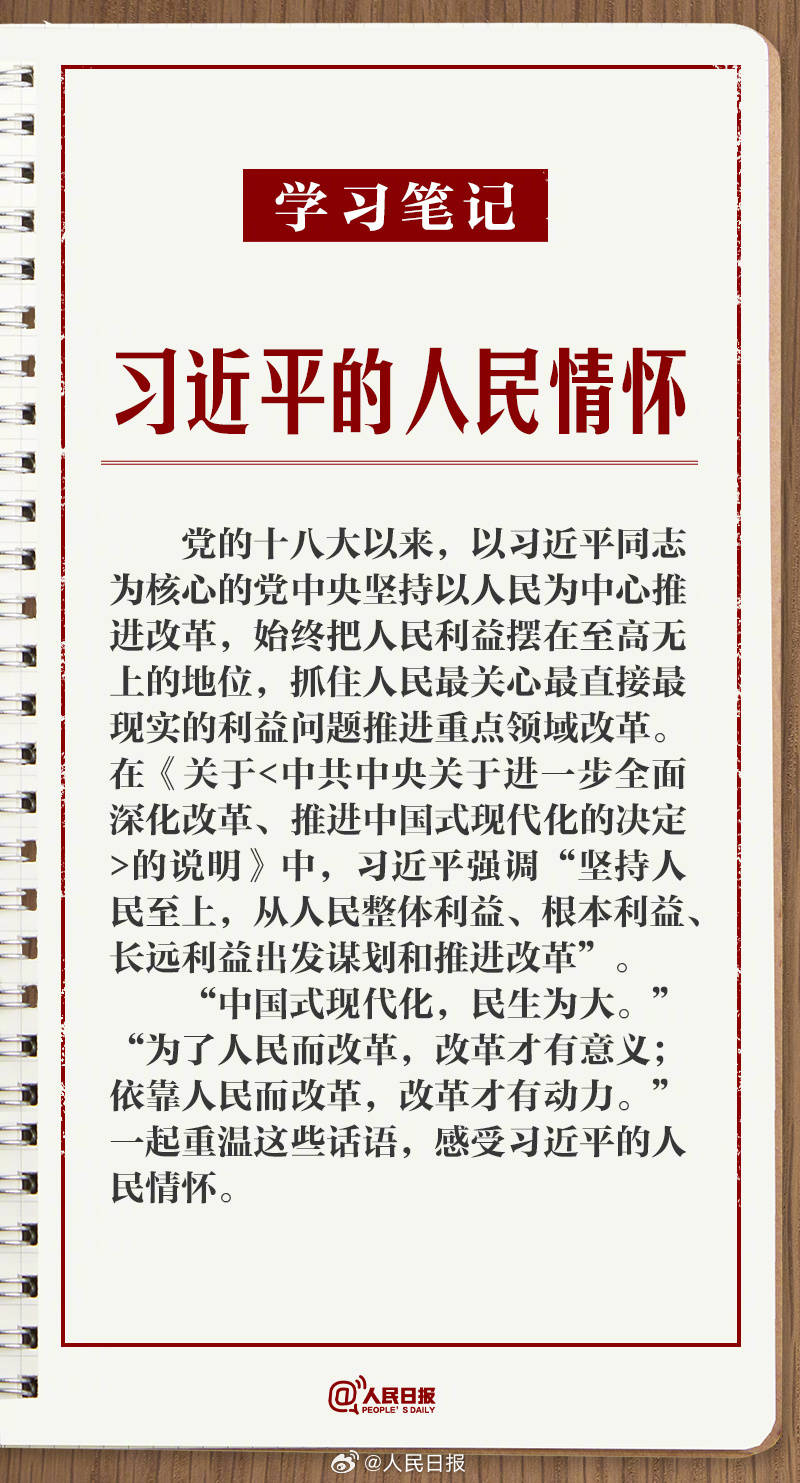 学习笔记
习近平的人民情怀
党的十八大以来，以习近平同志
为核心的党中央坚持以人民为中心推
进改革，始终把人民利益摆在至高无
上的地位，抓住人民最关心最直接最
现实的利益问题推进重点领域改革。
在《关于<中共中央关于进一步全面
深化改革、推进中国式现代化的决定
>的说明》中，习近平强调“坚持人
民至上，从人民整体利益、根本利益、
长远利益出发谋划和推进改革”。
“中国式现代化，民生为大。”
“为了人民而改革，改革才有意义；
依靠人民而改革，改革才有动力。”
一起重温这些话语，感受习近平的人
民情怀。
@人民日报
PEOPLE'S DAILY
@人民日报